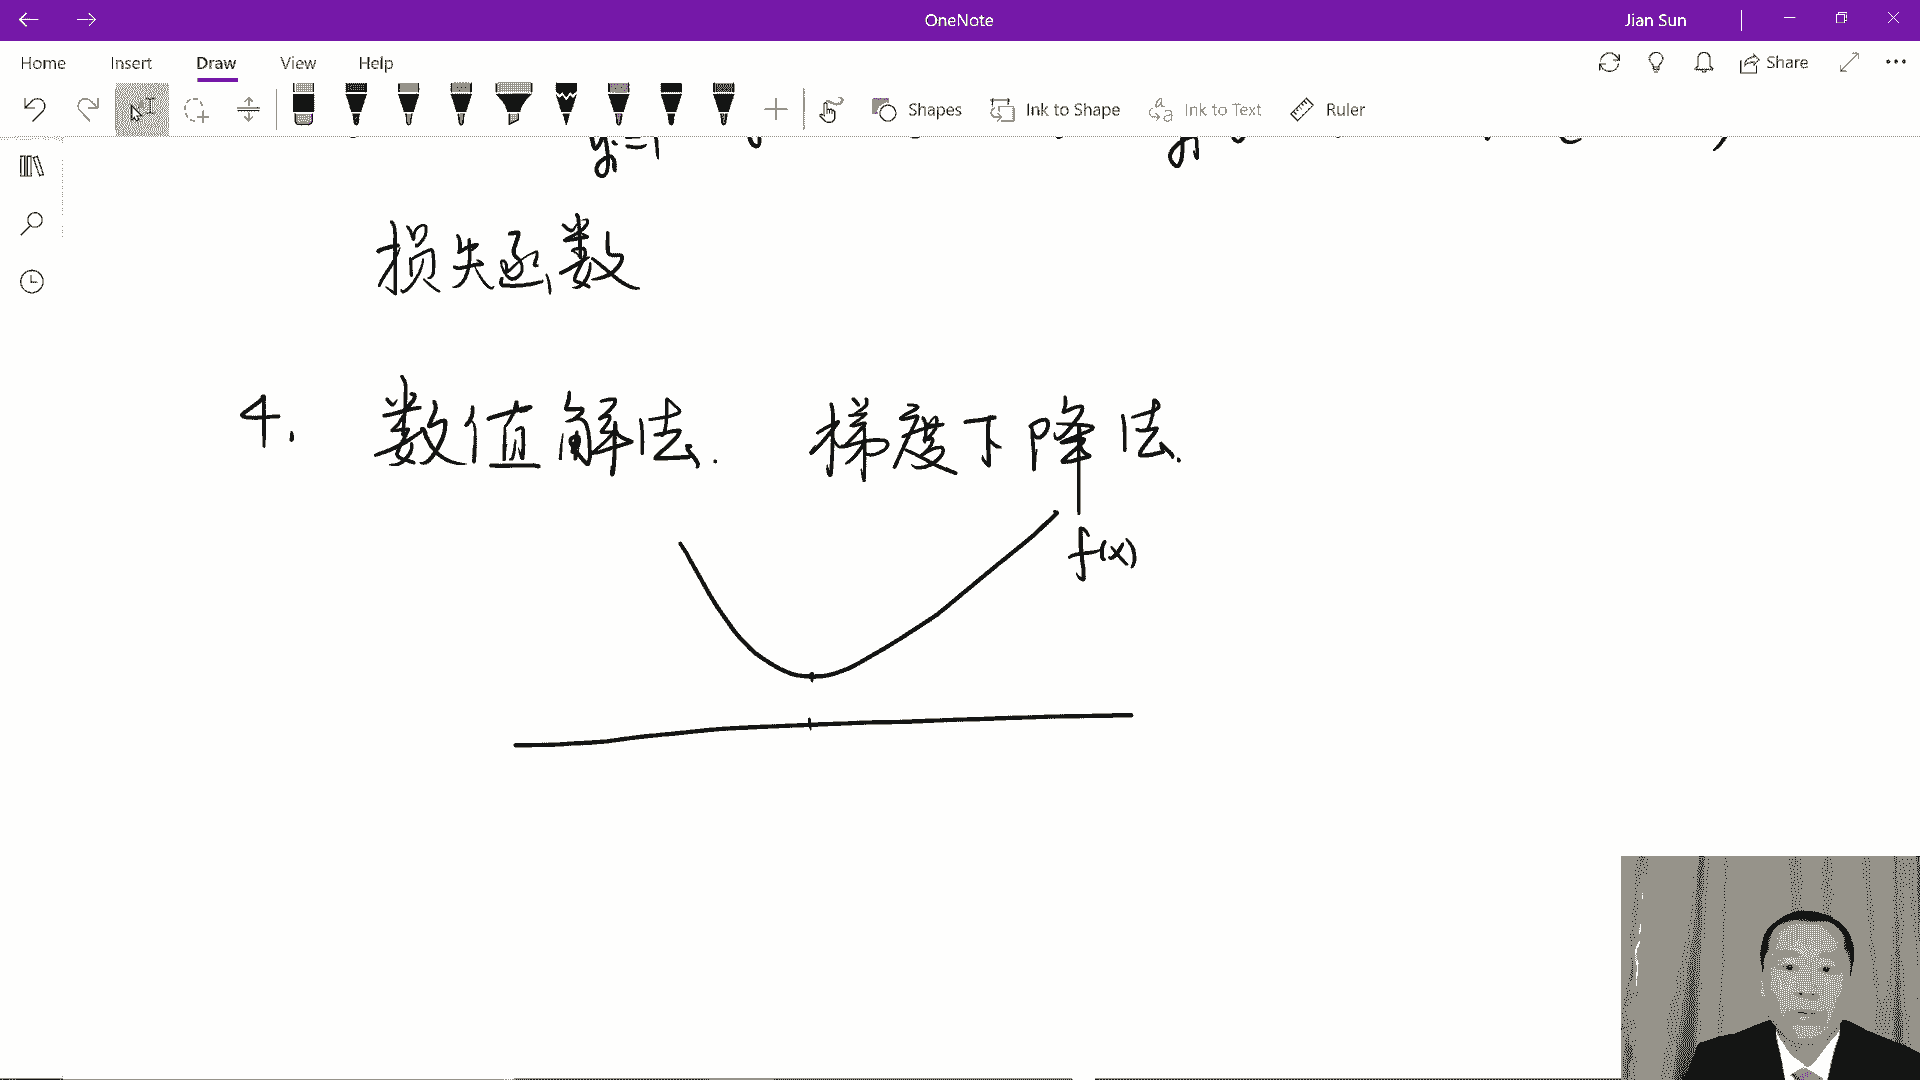 OneNote
Jian Sun
Home Insert Draw View Help
Share
Shapes Ink to Shape Ink to Text Ruler
yi=1
损失函数
4. 数值解法. 梯度下降法.
f(x)